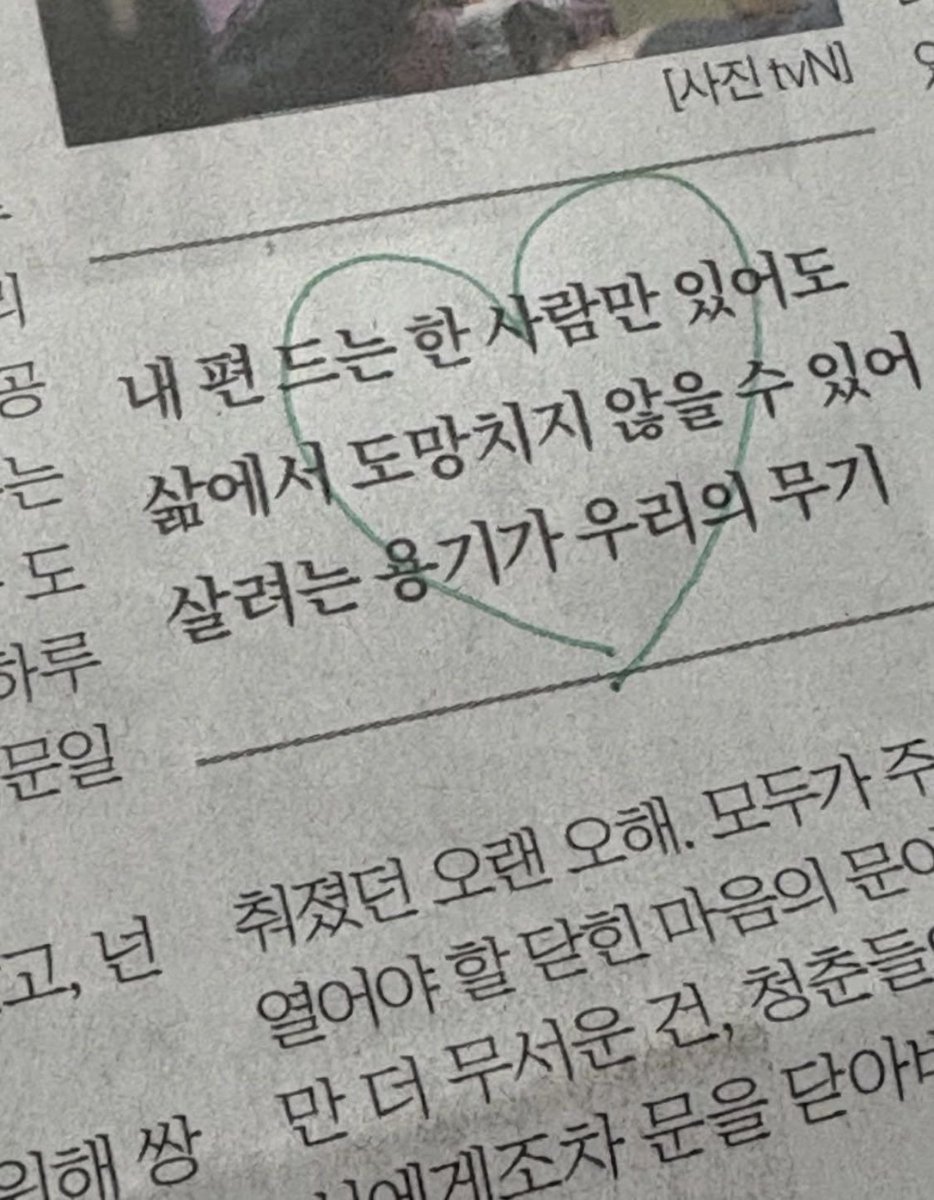 [사진 tvN]
내 편 드는 한 사람만 있어도
삶에서 도망치지 않을 수 있어
살려는 용기가 우리의 무기
공
는
도
하루
문일
고, 넌
위해 쌍
취졌던 오랜 오해. 모두가 주
열어야 할 닫힌 마음의 문이
만 더 무서운 건, 청춘들
에게조차 문을 닫아